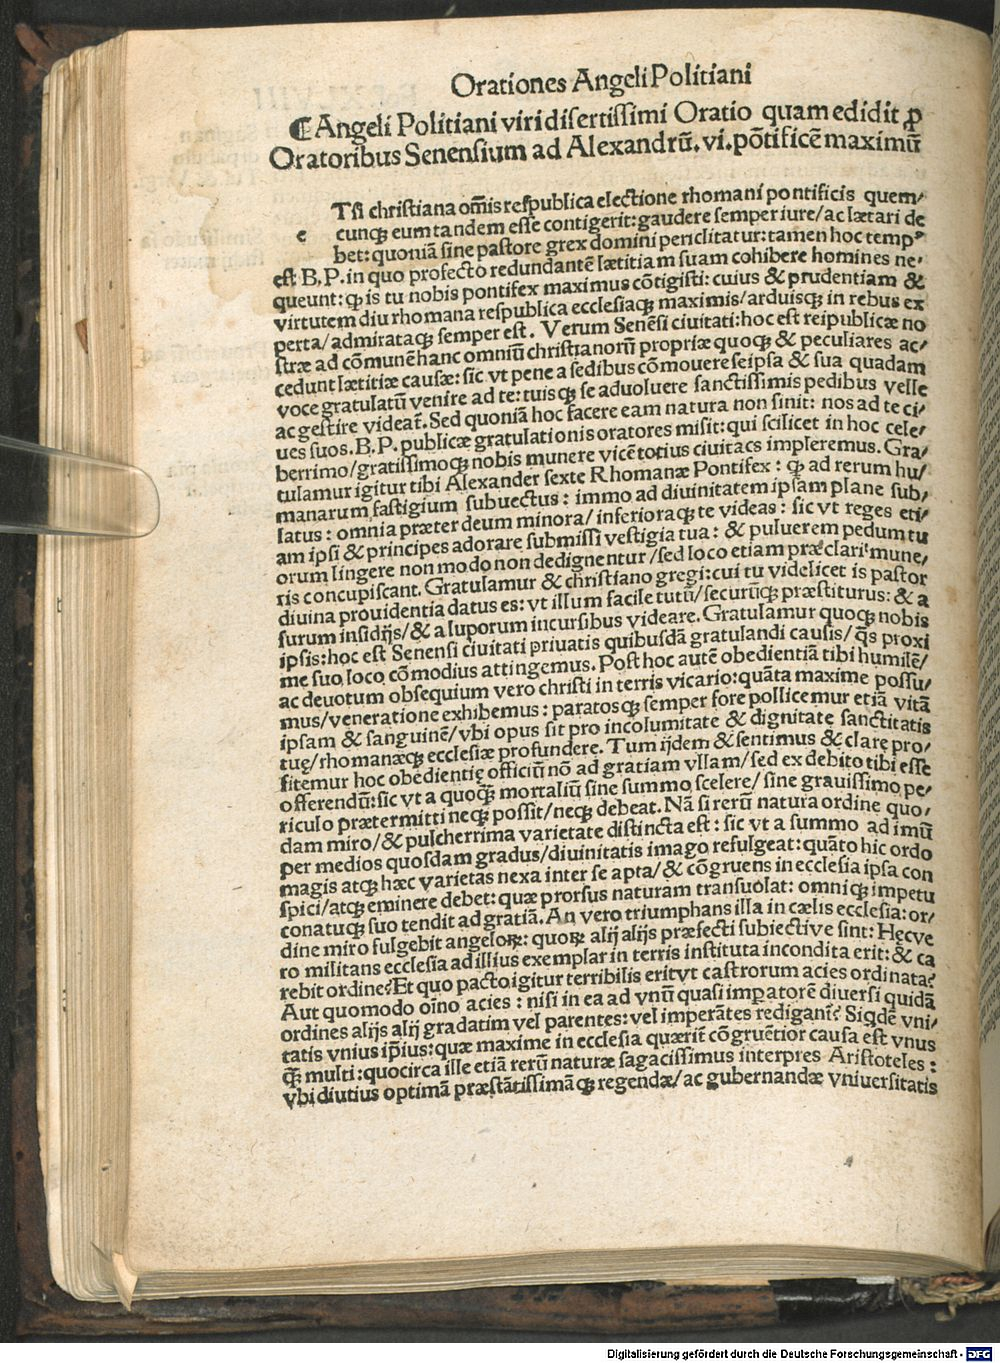 Orationes Angeli Politiani
⸿Angeli Politiani viri disertissimi Oratio quam edidit ꝓ
Oratoribus Senensium ad Alexandrū. vi. pōtificē maximū
Tsi christiana om̄is respublica electione rhomani pontificis quem/
e cunqꝫ eum tandem esse contigerit: gaudere semper iure/ac lætari de
bet: quoniā sine pastore grex domini periclitatur: tamen hoc tempꝰ
est B.P. in quo profecto redundantē lætitiam suam cohibere homines ne/
queunt: qꝫ is tu nobis pontifex maximus cōtigisti: cuius & prudentiam &
virtutem diu rhomana respublica ecclesiaqꝫ maximis/arduisqꝫ in rebus ex
perta/admirataqꝫ semper est. Verum Senēsi ciuitati: hoc est reipublicæ no
stræ ad cōmunē hanc omniū christianorū propriæ quoqꝫ & peculiares ac/
cedunt lætitiæ causæ: sic vt pene a sedibus cōmouere seipsa & sua quadam
voce gratulatū venire ad te: tuisqꝫ se aduoluere sanctissimis pedibus velle
ac gestire videat̄. Sed quoniā hoc facere eam natura non sinit: nos ad te ci/
ues suos. B.P. publicæ gratulationis oratores misit: qui scilicet in hoc cele/
berrimo/gratissimoqꝫ nobis munere vicē totius ciuitatis impleremus. Gra/
tulamur igitur tibi Alexander sexte Rhomanæ Pontifex: qꝫ ad rerum hu/
manarum fastigium subuectus: immo ad diuinitatem ipsam plane sub/
latus: omnia præter deum minora/inferioraqꝫ te videas: sic vt reges eti/
am ipsi & principes adorare submissi vestigia tua: & puluerem pedum tu
orum lingere non modo non dedignentur/sed loco etiam præclari mune/
ris concupiscant. Gratulamur & christiano gregi: cui tu videlicet is pastor
diuina prouidentia datus es: vt illum facile tutū/securūqꝫ præstiturus: & a
furum insidijs/& a luporum incursibus videare. Gratulamur quoqꝫ nobis
ipsis: hoc est Senensi ciuitati priuatis quibusdā gratulandi causis/q̄s proxi
me suo loco cōmodius attingemus. Post hoc autē obedientiā tibi humilē/
ac deuotum obsequium vero christi in terris vicario: quāta maxime possu/
mus/veneratione exhibemus: paratosqꝫ semper fore pollicemur etiā vitā
ipsam & sanguinē/vbi opus sit pro incolumitate & dignitate sanctitatis
tuę/rhomanæqꝫ ecclesiæ profundere. Tum ijdem & sentimus & clare pro/
fitemur hoc obedientię officiū nō ad gratiam vllam/sed ex debito tibi esse
offerendū: sic vt a quoqꝫ mortaliū sine summo scelere/ sine grauissimo pe/
riculo prætermitti neqꝫ possit/neqꝫ debeat. Nā si rerū natura ordine quo/
dam miro/& pulcherrima varietate distincta est: sic vt a summo ad imū
per medios quosdam gradus/diuinitatis imago refulgeat: quāto hic ordo
magis atqꝫ hæc varietas nexa inter se apta/& cōgruens in ecclesia ipsa con
spici/atqꝫ eminere debet: quæ prorsus naturam transuolat: omniqꝫ impetu
conatuqꝫ suo tendit ad gratiā. An vero triumphans illa in cælis ecclesia: or/
dine miro fulgebit angeloꝝ: quoꝝ alij alijs præfecti subiective sint: Hęcve
ro militans ecclesia ad illius exemplar in terris instituta incondita erit: & ca
rebit ordine? Et quo pacto igitur terribilis erit vt castrorum acies ordinata?
Aut quomodo oīno acies: nisi in ea ad vnū quasi imperatorē diuersi quidā
ordines alijs alij gradatim vel parentes: vel imperātes redigant̄? Siqdē vni/
tatis vnius ip̄ius: quæ maxime in ecclesia quærit̄ cōgruētior causa est vnus
qꝫ multi: quocirca ille etiā rerū naturæ sagacissimus interpres Aristoteles:
vbi diutius optimā præstātissimāqꝫ regendæ/ac gubernandæ vniuersitatis
Digitalisierung gefördert durch die Deutsche Forschungsgemeinschaft - DFG